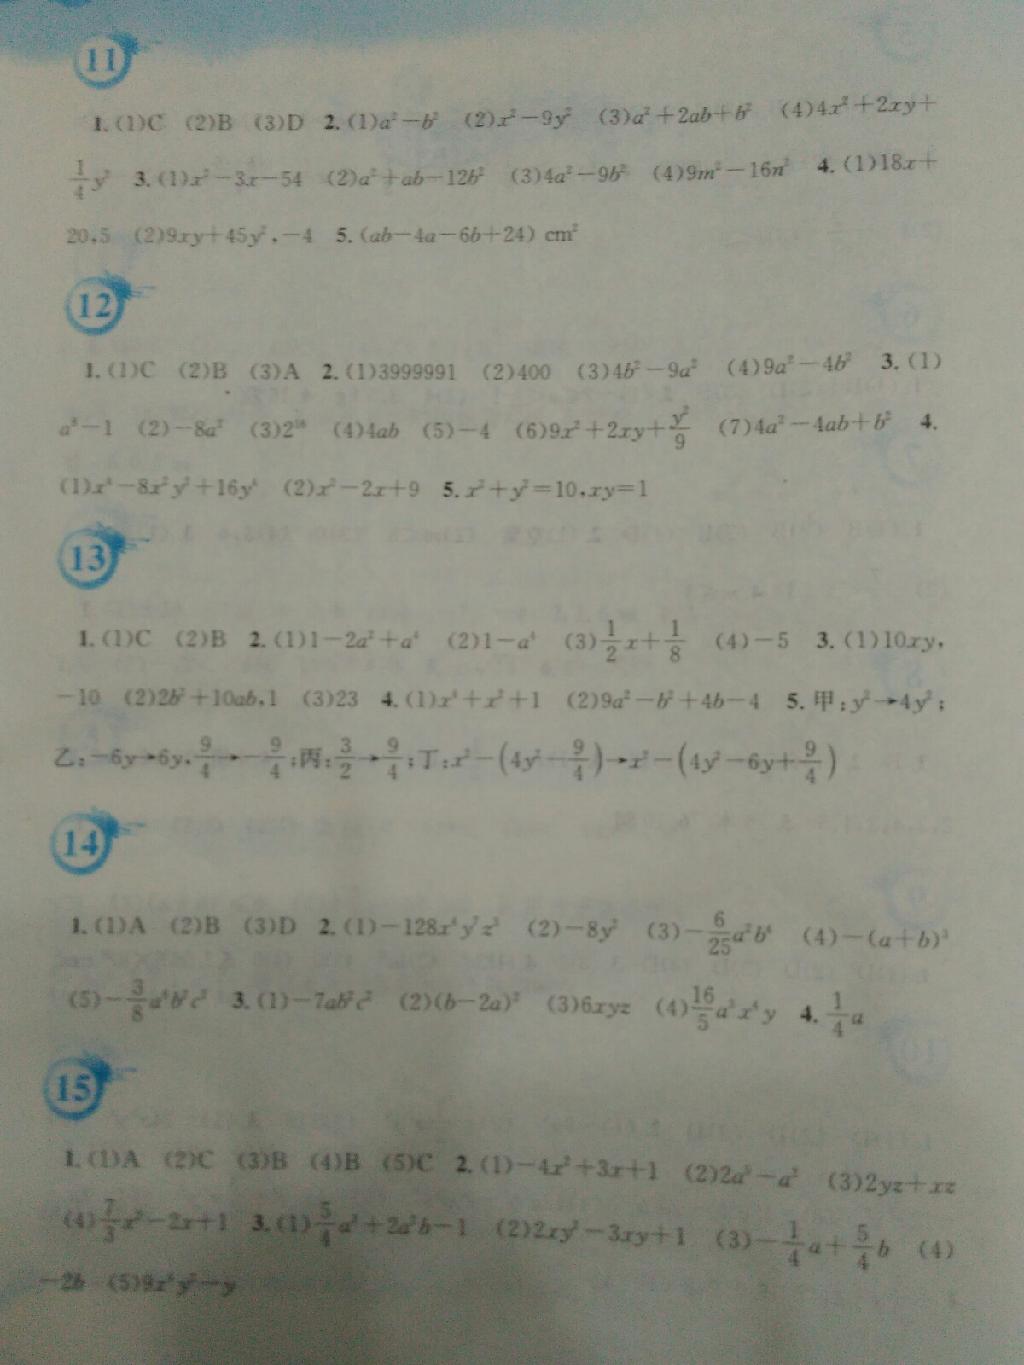 11
1. (1)C (2)B (3)D 2. (1)a²−b² (2)x²−9y² (3)a²+2ab+b² (4)4x²+2xy+
1/4y² 3. (1)x²−3x−54 (2)a²+ab−12b² (3)4a²−9b² (4)9m²−16n² 4. (1)18x+
20,5 (2)9xy+45y²,−4 5. (ab−4a−6b+24) cm²
12
1. (1)C (2)B (3)A 2. (1)3999991 (2)400 (3)4b²−9a² (4)9a²−4b² 3. (1)
a⁸−1 (2)−8a² (3)2¹⁶ (4)4ab (5)−4 (6)9x²+2xy+y²/9 (7)4a²−4ab+b² 4.
(1)x⁴−8x²y²+16y⁴ (2)x²−2x+9 5. x²+y²=10,xy=1
13
1. (1)C (2)B 2. (1)1−2a²+a⁴ (2)1−a⁴ (3)1/2x+1/8 (4)−5 3. (1)10xy,
−10 (2)2b²+10ab,1 (3)23 4. (1)x⁴+x²+1 (2)9a²−b²+4b−4 5. 甲:y²→4y²;
乙:−6y→6y,9/4→−9/4;丙:3/2→9/4;丁:x²−(4y²−9/4)→x²−(4y²−6y+9/4)
14
1. (1)A (2)B (3)D 2. (1)−128x⁴y⁷z³ (2)−8y² (3)−6/25a²b⁴ (4)−(a+b)³
(5)−3/8a⁴b²c² 3. (1)−7ab²c² (2)(b−2a)² (3)6xyz (4)16/5a³x⁴y 4. 1/4a
15
1. (1)A (2)C (3)B (4)B (5)C 2. (1)−4x²+3x+1 (2)2a³−a² (3)2yz+xz
(4)7/3x²−2x+1 3. (1)5/4a²+2a²b−1 (2)2xy²−3xy+1 (3)−1/4a+5/4b (4)
−2b (5)9x⁴y²−y